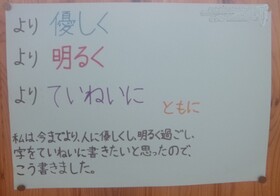 より 優しく
より 明るく
より ていねいに
ともに
私は、今までより、人に優しくし、明るく過ごし、
字をていねいに書きたいと思ったので、
こう書きました。